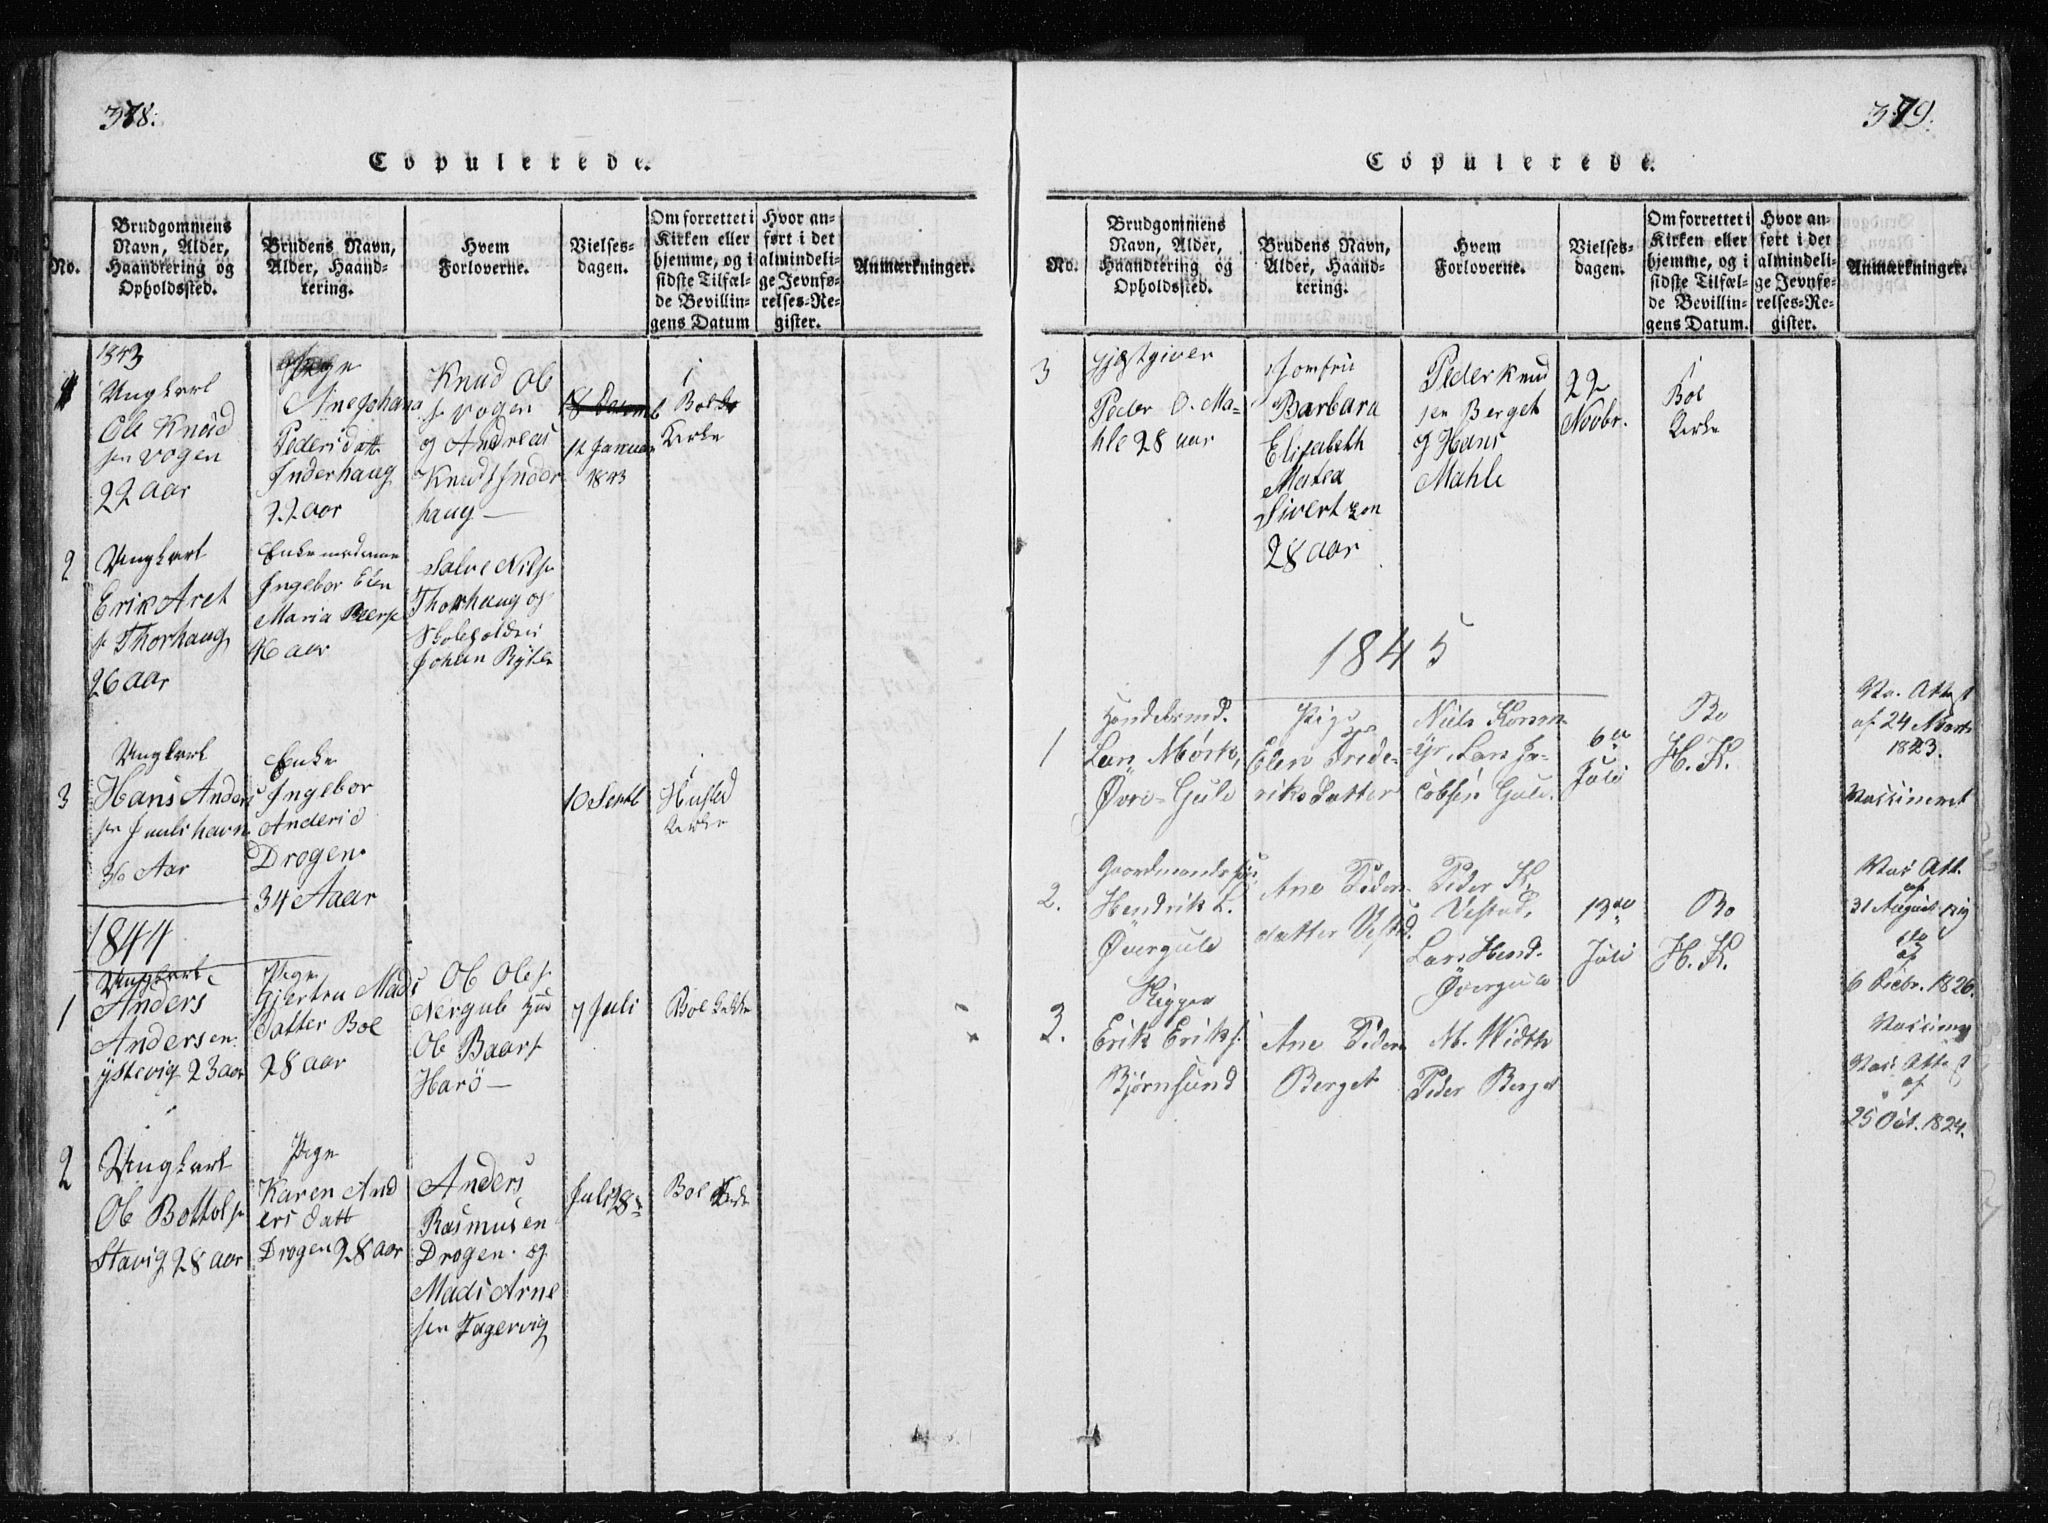 378.
Copulerede.
No.
Brudgommens Navn, Alder, Haandtering og Opholdssted.
Brudens Navn, Alder, Haandtering.
Hvem Forloverne.
Vielsesdagen.
Om forrettet i Kirken eller hjemme, og i sidste Tilfælde Bevillingens Datum
Hvor anført i det almindelige Jevnførelses-Register.
Anmærkninger.
1843
1
Ungkarl
Ole Knud
sen Vogen
22 aar
Pige
Ane Johana
Pedersdatt
Inderhaug
22 aar
Knud Ole
sen Vogen
og Andreas
Knuds Inder
haug
12 Januar
1843
i
Boe
Kirke
2
Ungkarl
Erik Aret
s. Thorhaug
26 aar
Enkemadame
Ingebor Elen
Maria
46 aar
Salve Nils
Thorhaug og
Skoleholder
Johan
3
Ungkarl
Hans Anders
sen
36 Aar
Enke
Ingebor
Andersd
Drogen
34 Aaar
10 Sertb
i
Husted
Kirke
1844
1
Ungkarl
Anders
Andersen
ystevig 23 aar
Pige
Gjertru Mads
datter Boe
28 aar
Ole Oles
Nergule
Ole Baars
Harö
7 Juli
Boe Kirke
2
Ungkarl
Ole Bottols
Stavig 28 aar
Pige
Karen And
ers datt
Drogen 28 aar
Anders
Rasmusen
Drogen og
Mads Arne
sen Fagervig
Juli 28
Boe Kirke
379.
Copulerede.
No.
Brudgommens Navn, Alder, Haandtering og Opholdssted.
Brudens Navn, Alder, Haandtering.
Hvem Forloverne.
Vielsesdagen.
Om forrettet i Kirken eller hjemme, og i sidste Tilfælde Bevillingens Datum.
Hvor anført i det almindelige Jevnførelses-Register.
Anmærkninger.
3
Gjestgiver
Peder O. Ma-
hle 28 aar
Jomfru
Barbara
Elisabeth
Matea
Sivertzon
28 aar
Peder Knud
sen Berget
og Hans
Mahle
22
Novbr.
i
Boe
Kirke
1845
1
Handelsmd.
Lars Mørk,
Øvre-Gule
Pige
Elen Frede-
riksdatter
Niels
Lars Ja-
cobsen Gule.
6te
Juli
Bo
H. K.
Va. Attest
af 24 Marts
1823.
Vaccineret
2.
Gaardmandssøn
Hendrik L.
Øvergule
Ane Peders-
datter Vestad.
Peder K.
Vestad,
Lars Hend.
Øvergule
13de
Juli
Bo
H. K.
Vac. Att.
af
31 August
af
6 Decbr. 1826.
3.
Erik Eriks.
Bjørnsund
Ane Peders
Berget
M. Width
Peder Berget
Vac. Attest
af
25 Oct. 1824.